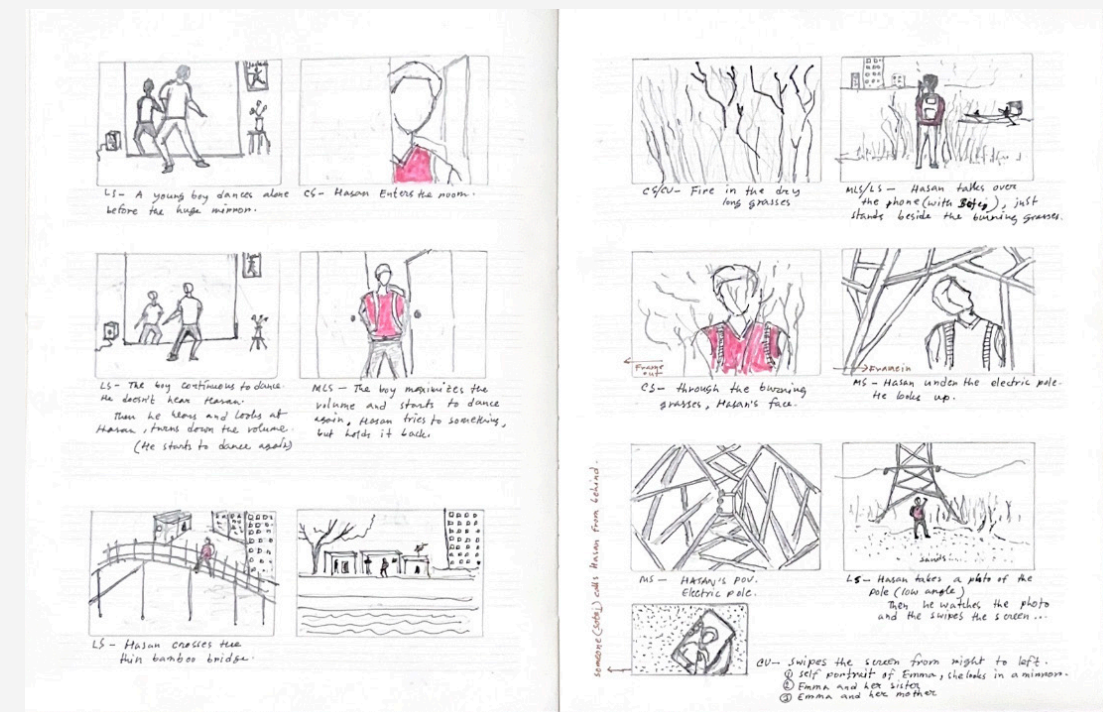 LS- A young boy dances alone
before the huge mirror.
CS- Hasan Enters the room.
LS- The boy continuous to dance.
He doesn't hear Hasan.
Then he hears and looks at
Hasan, turns down the volume.
(He starts to dance again)
MLS- The boy maximizes the
volume and starts to dance
again, Hasan tries to something,
but holds it back.
LS- Hasan crosses the
thin bamboo bridge.
CS/CU- Fire in the dry
long grasses
MLS/LS- Hasan talks over
the phone (with), just
stands beside the burning grasses.
Frame
out
CS- through the burning
grasses, Hasan's face.
Frame in
MS- Hasan under the electric pole.
He looks up.
someone (sotej) calls Hasan from behind.
MS- HASAN'S POV.
Electric pole.
sands
LS- Hasan takes a photo of the
pole (low angle)
Then he watches the photo
and the swipes the screen...
CU- swipes the screen from right to left.
① self portrait of Emma, she looks in a mirror.
② Emma and her sister
③ Emma and her mother